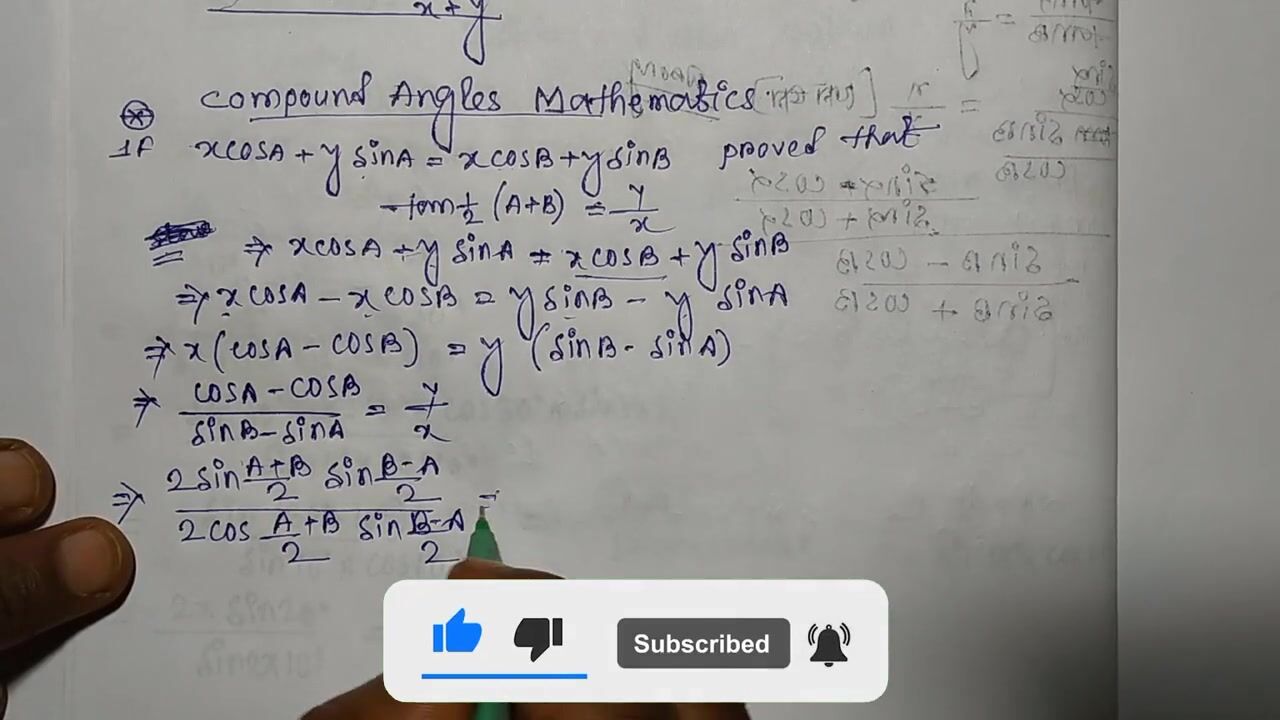 x+y
Compound Angles Mathematics
If xcosA + y sinA = xcosB + y sinB proved that
tan 1/2 (A+B) = y/x
⇒ xcosA + y sinA = xcosB + y sinB
⇒ xcosA - xcosB = y sinB - y sinA
⇒ x(cosA - cosB) = y (sinB - sinA)
⇒ (cosA - cosB)/(sinB - sinA) = y/x
⇒ (2 sin (A+B)/2 sin (B-A)/2)/(2 cos (A+B)/2 sin (B-A)/2) =
Subscribed